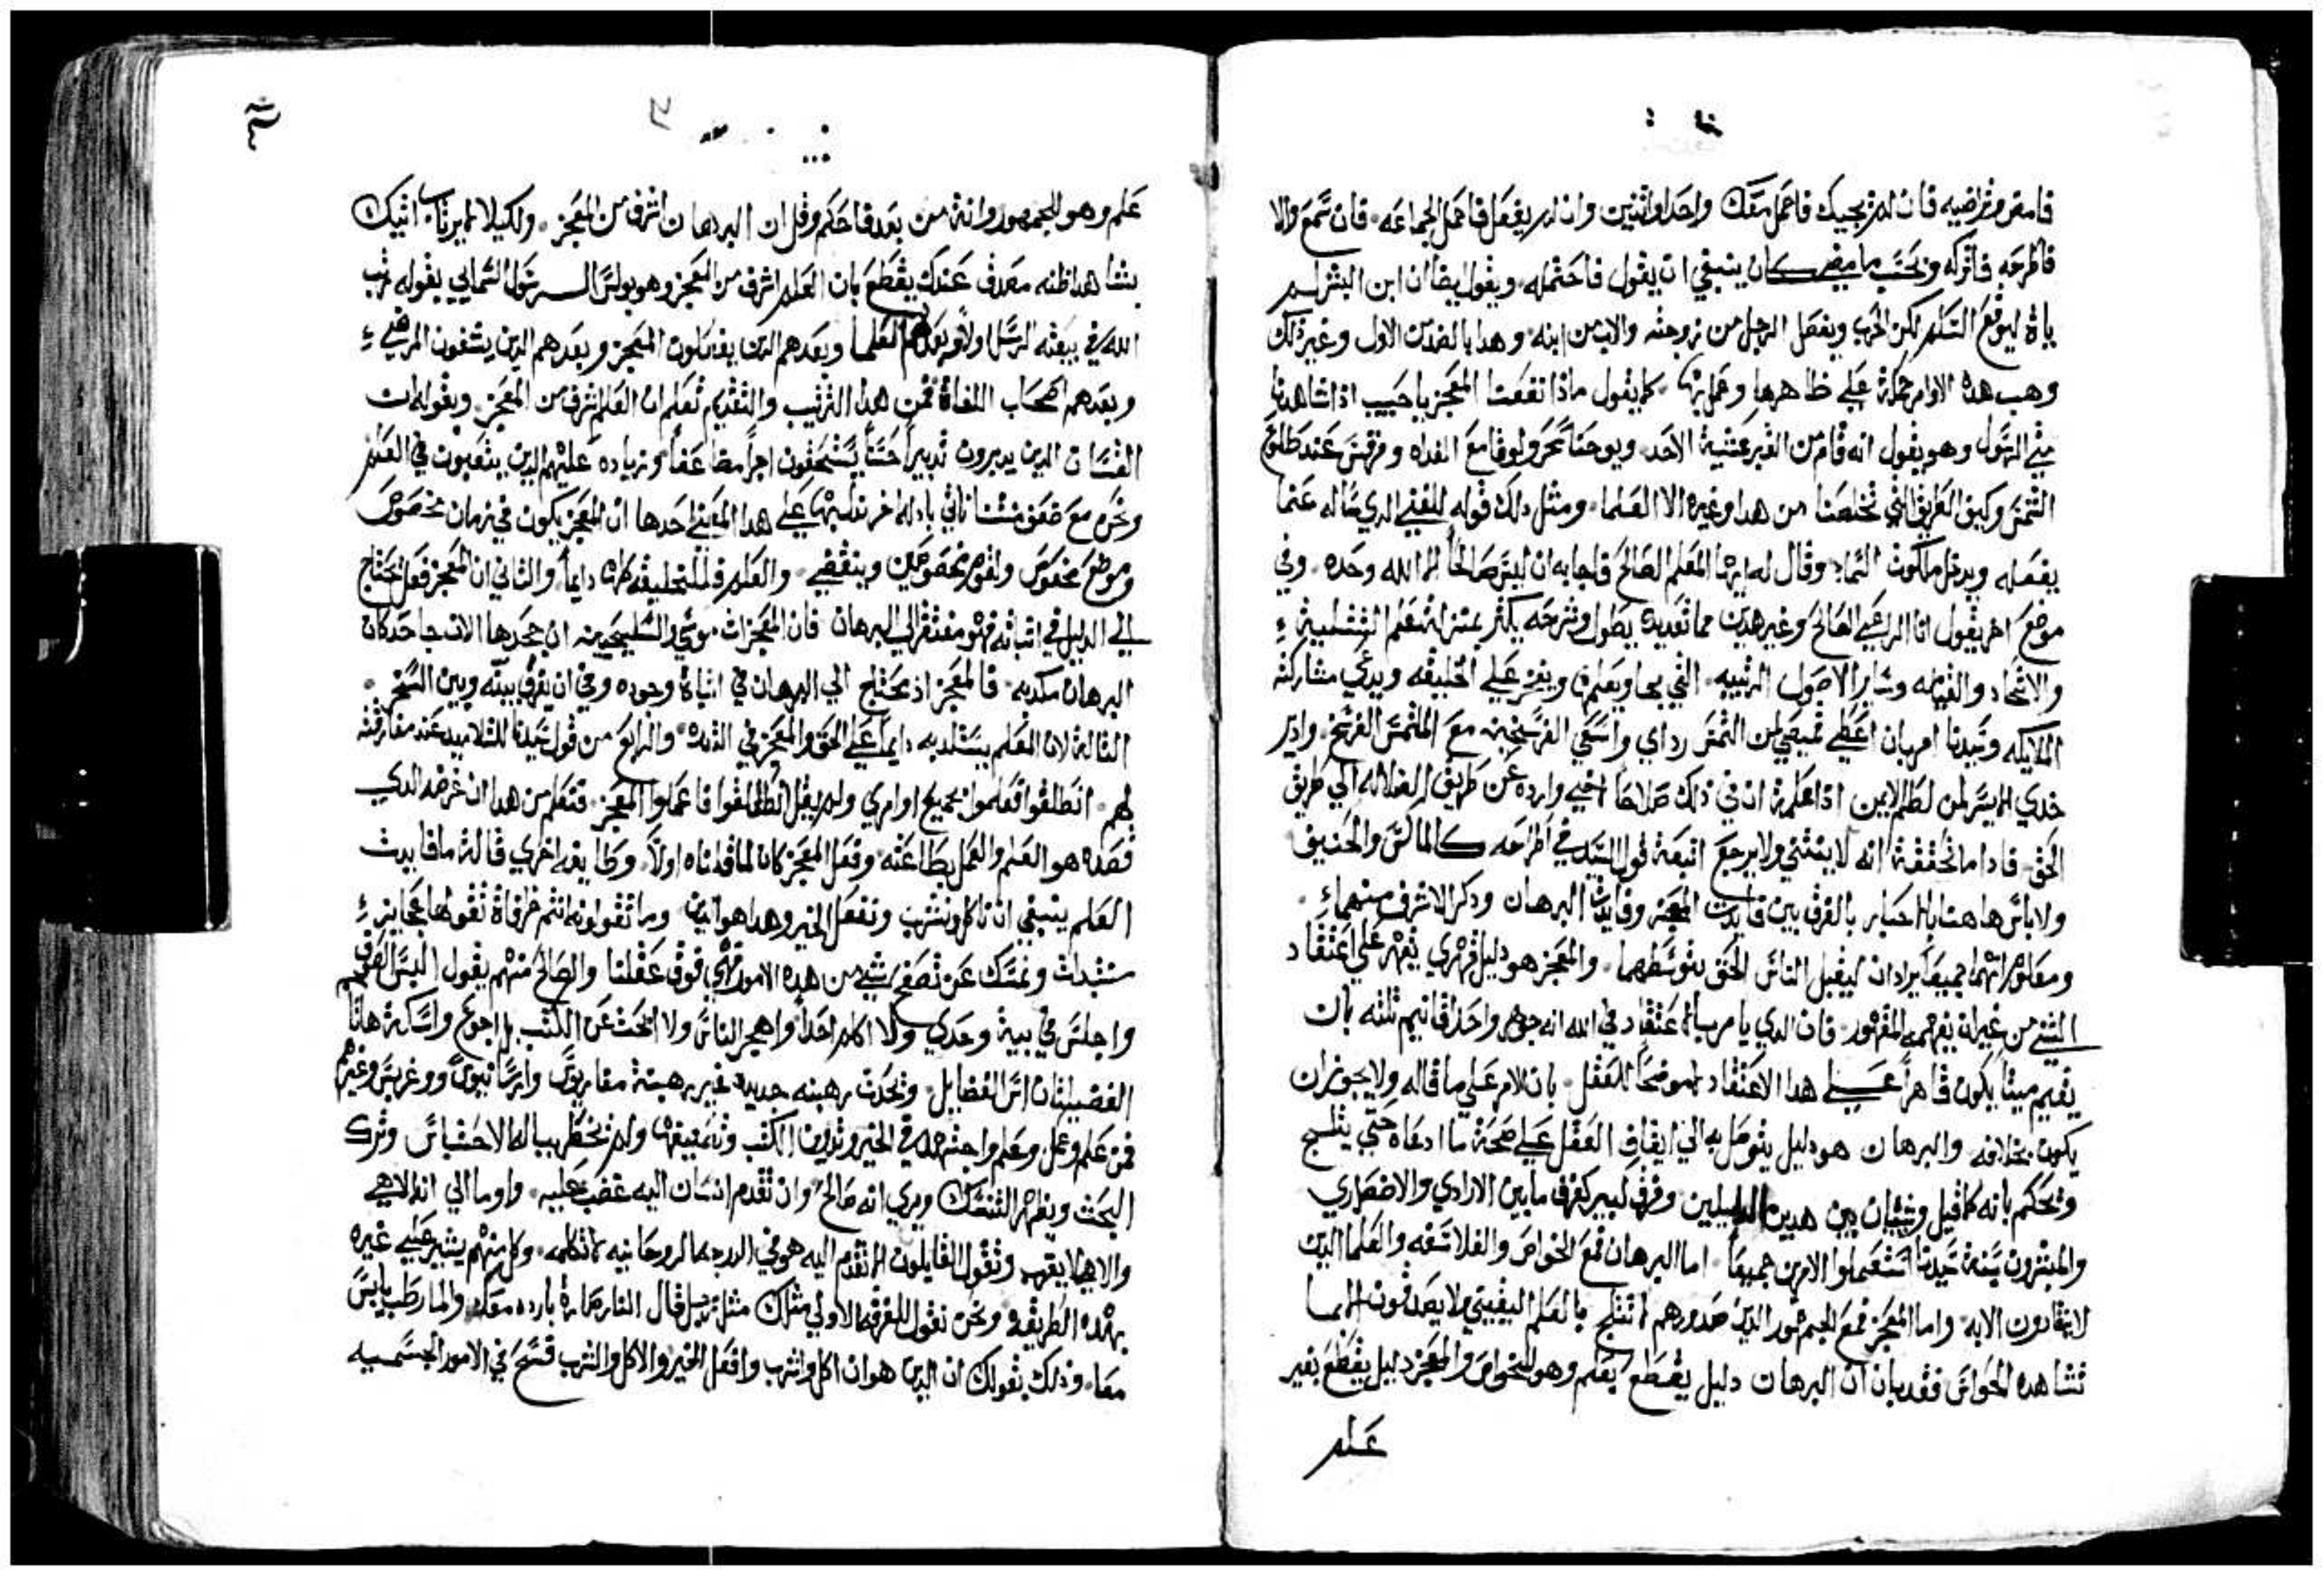 فامض وتراضيه فان لم يجيبك فاحمل معك واحد او اثنين وان لم يفعل فاحمل الجماعه فان سمع والا
فاطرحه فاتركه وبحسب ما مضى كان ينبغي ان يقول فاحتمله ويقول ايضا ان ابن البشر لم
ياة ليوقع السلم لكن الحرب ويفصل الرجل من زوجته والاب من ابنه وهدا بالضد من الاول وغير دلك
وهب هده الاوامر على ظاهرها وعمل بها كما يقول ماذا نفعت المعجز يا حبيب اذا شاهدنا
متي الرسول وهو يقول انه قام من القبر عشية الاحد ويوحنا سحر ولوقا مع الغداه ومرقس عند طلوع
الشمس وكيف الطريق التي تخلصنا من هدا وغيره الا العلما ومثل دلك قوله للغني الدي ساله عما
يفعله ويدخل ملكوت السما وقال له ايها المعلم الصالح فاجابه ان ليس صالحا الا الله وحده وفي
موضع اخر يقول انا الراعي الصالح وغير هدين مما تعديده يطول وشرحه يكثر بمنزلة تعلم التتليت
والاتحاد والقيامه وساير الاصول
الملايكه وسيدنا امر بان اعطي قميصي لمن التمس رداي واسعي الفرسخين مع الملتمس الفرسخ وادير
خدي الايسر لمن لطم الايمن اذا علمة ان في ذلك صلاحا لاخي وارده عن طريق الضلاله الي طريق
الحق فادا ما تحققة انه لا ينتني ولا يرجع اتبعة قول السيد في اطراحه كالماكس والحنيف
ولا باس هاهنا بالاخبار بالفرق بين فايدت المعجز وفايدت البرهان ودكر الاشرف منهما
ومعلوم انهما جميعا يرادان ليقبل الناس الحق بتوسطهما والمعجز هو دليل قهري يقهر على اعتقاد
الشي من غير ان يفهمه المقهور فان الدي يامر بالاعتقاد في الله انه جوهر واحد اقانيم تلته بان
يقيم ميتا يكون قاهرا علي هدا الاعتقاد لا موضحا للعقل بان الامر على ما قاله ولا يجوز ان
يكون بخلافه والبرهان هو دليل يتوصل به الي ايقاف العقل علي صحة ما ادعاه حتي يثلج
وتحكم بانه كما قيل وشتان بين هدين الدليلين وفرق كبير كفرق ما بين الارادي والاضطراري
والمبشرون بسنة سيدنا استعملوا الامرين جميعا اما البرهان فمع الخواص والفلاسفه والعلما الدين
لا ينقادون الا به واما المعجز فمع الجمهور الدين صدورهم لا تثلج بالعلم اليقيني ولا يصدقون الا بما
تشاهده الحواس فقد بان ان البرهان دليل يقطع بعلم وهو للخواص والمعجز دليل يقطع بغير
علم
علم وهو للجمهور وانة من بعد فاحكم وقل ان البرهان اشرف من المعجز ولكيلا اتيك
بشاهد اظنه معدق عندك يقطع بان العلم اشرف من المعجز وهو بولس الرسول السمايي بقوله رتب
الله في بيعته الرسل اولا وبعدهم العلما وبعدهم الدين يفعلون المعجز وبعدهم الدين يشفون المرضي
وبعدهم اصحاب اللغاة فمن هدا الترتيب والتقديم تعلم ان العلم اشرف من المعجز وبقوله ان
القسان الدين يدبرون تدبيرا حسنا يستحقون اجرا مضاعفا وزياده عليهم الدين يتعبون في العلم
ونحن مع ضعف مننا ناتي بادله اخر ندل بها علي هدا المعني احدها ان المعجز يكون في زمان مخصوص
وموضع مخصوص ولقوم مخصوصين وينقضي والعلم فللخليقه كلها دايما والتاني ان المعجز فعل يحتاج
الي الدليل في اتباته فهو مفتقر الي البرهان فان المعجزات موسي والسليحيين ان جحدها الان جاحد كان
البرهان مكدبه فالمعجز اذ يحتاج الي البرهان في اتباة وجوده وفي ان يفرق بينه وبين السحر
التالتة لان العلم يستلد به دايما علي الحق والمعجز في الندره والرابع من قول سيدنا للتلاميد عند مفارقته
لهم انطلقوا فعلموا بجميع اوامري ولم يقل انطلقوا فاعملوا المعجز فتعلم من هدا ان غرضه الدي
قصده هو العلم والعمل بطاعته وفعل المعجز كان لما قلناه اولا وطايفه اخري قالة ما فايدت
العلم ينبغي ان ناكل ونشرب ونفعل الخير وهدا هو الدين وما تقولونه انتم خرافاة تقولها عجايز
ونمسك عن تصفح شي من هده الامور فهي فوق عقلنا والصالح منهم يقول البس الصوف
واجلس في بيتي وحدي ولا اكلم احدا واهجر الناس ولا ابحث عن الكتب بل اجوع واسكت هاتان
الفضيلتان اس الفضايل وتحدت رهبنه جديده غير رهبنة مقاريوس وارسانيوس وغيرهم
فمن علم وعمل وعلم واجتهد في الخير وتدوين الكتب وتصنيفها ولم يخطر بباله الاحتباس وترك
البحث ويظهر التنسك ويري انه صالح وان تقدم انسان اليه غضب عليه واوما الي انه الاهي
والالهي لا يقرب وتقول القايلون لا تقدم اليه هو في الدرجه الروحانيه لا تكلمه وكل منهم يشير علي غيره
بهده الطريقه ونحن نقول للفرقه الاولي متلك متل رجل قال النار حارة بارده معا والما رطب يابس
معا وذلك بقولك ان الدين هو ان اكل واشرب وافعل الخير والاكل والشرب في الامور الجسميه